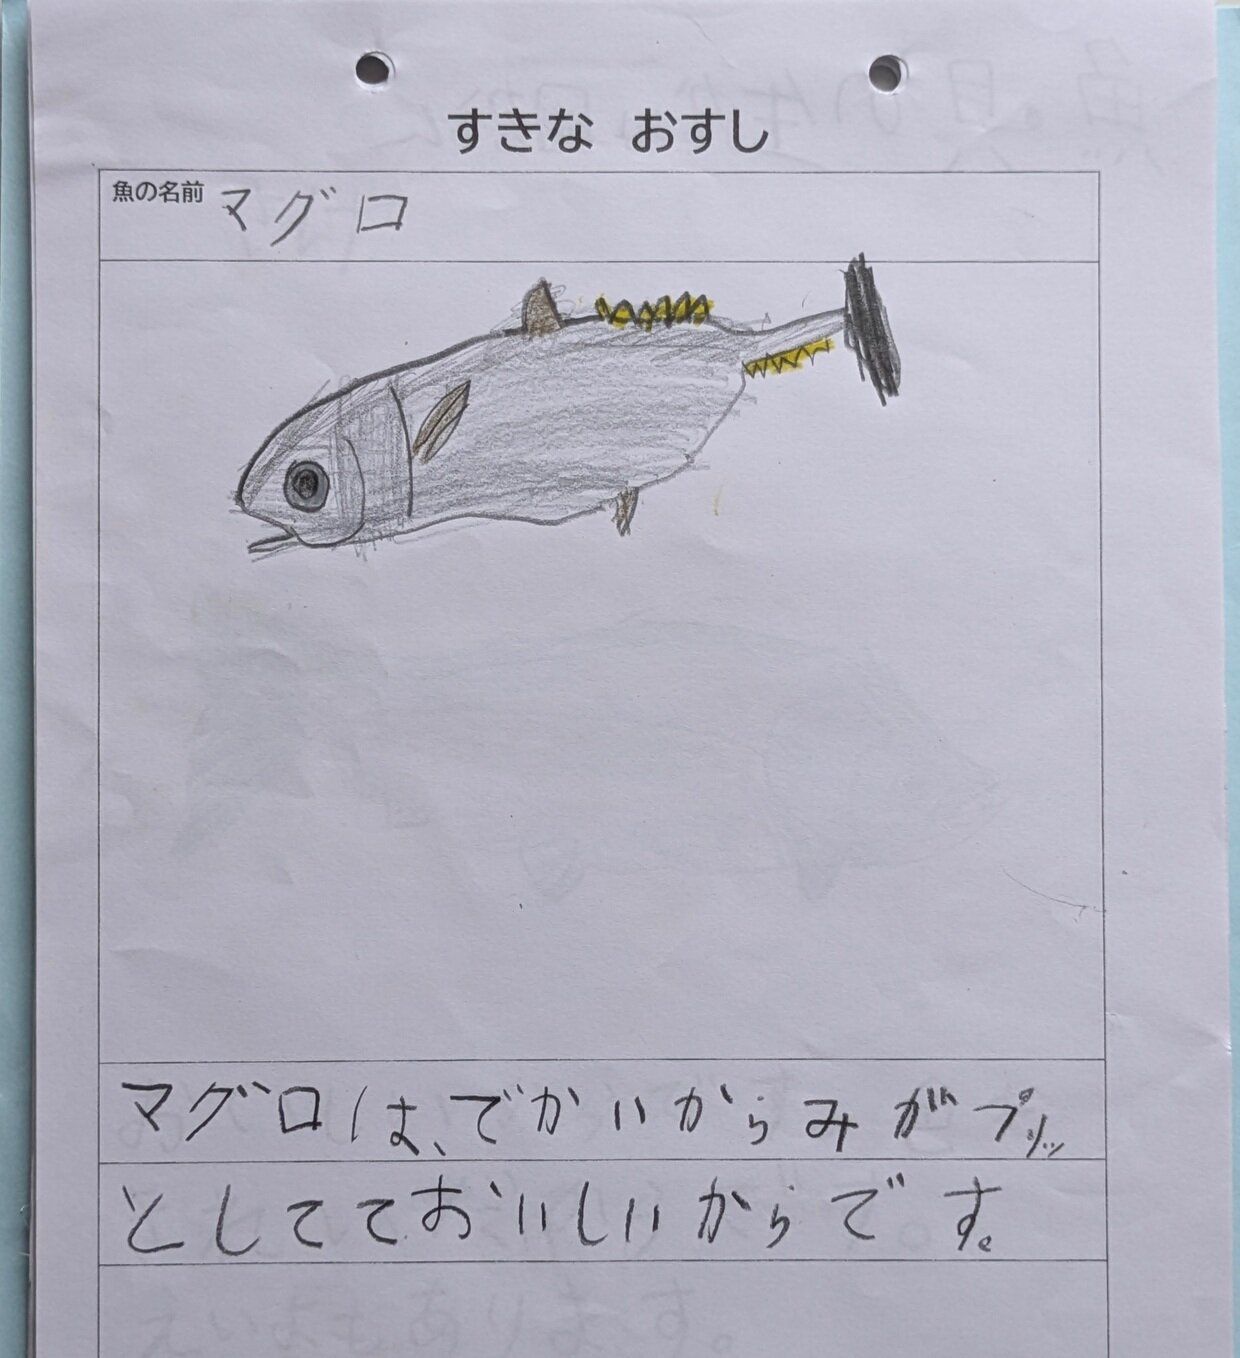 すきな おすし
魚の名前 マグロ
マグロは、でかいからみがプリッ
としてておいしいからです。